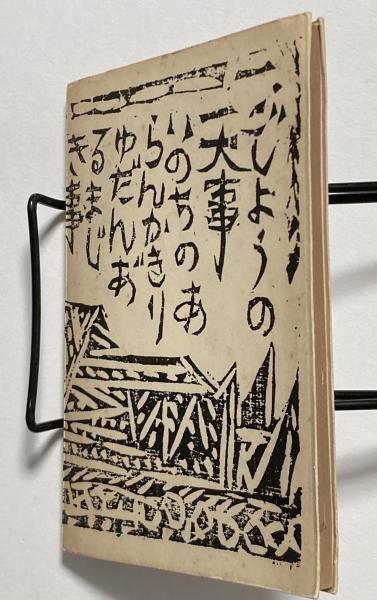 ごしようの
一大事
いのちのあ
らんかぎり
ゆだんあ
るまじ
き事